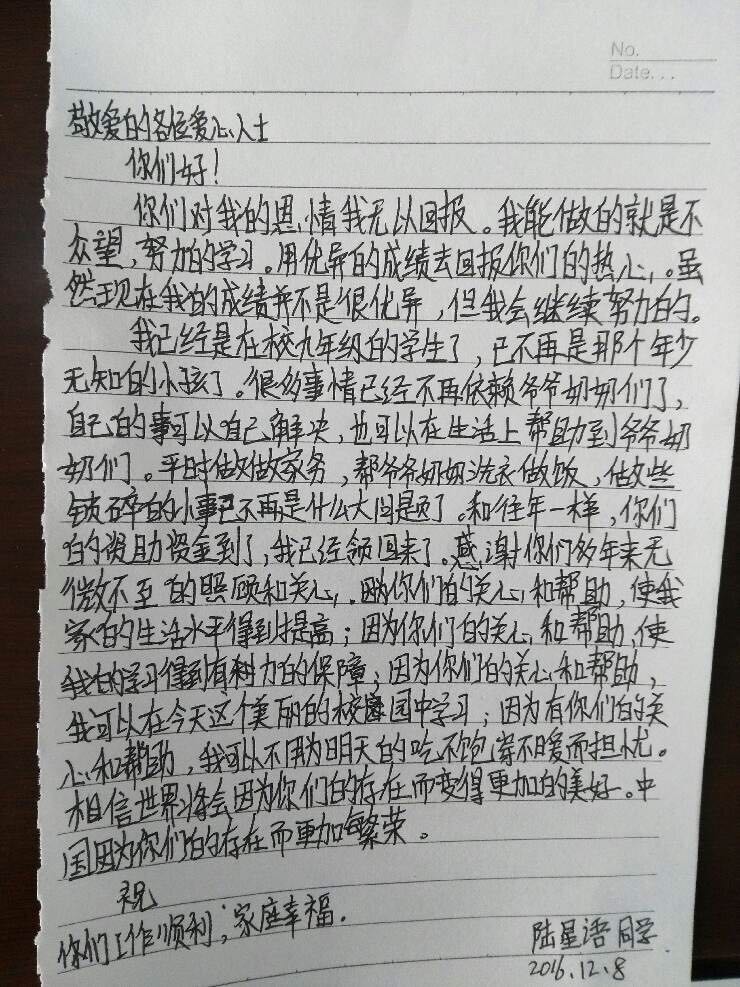 No.
Date...
敬爱的各位爱心人士
你们好！
你们对我的恩情我无以回报。我能做的就是不
众望，努力的学习。用优异的成绩去回报你们的热心。虽
然现在我的成绩并不是很优异，但我会继续努力的。
我已经是在校九年级的学生了，已不再是那个年少
无知的小孩了。很多事情已经不再依赖爷爷奶奶们了，
自己的事可以自己解决，也可以在生活上帮助到爷爷奶
奶们。平时做做家务，帮爷爷奶奶洗衣做饭，做这些
锁碎的小事已不再是什么大问题了。和往年一样，你们
的资助资金到了，我已经领回来了。感谢你们多年来无
微不至的照顾和关心。因为你们的关心和帮助，使我
家的生活水平得到提高；因为你们的关心和帮助，使
我的学习得到有力的保障；因为你们的关心和帮助，
我可以在今天这个美丽的校园中学习；因为有你们的关
心和帮助，我可以不用为明天的吃不饱穿不暖而担忧。
相信世界将会因为你们的存在而变得更加的美好。中
国因为你们的存在而更加繁荣。
祝
你们工作顺利，家庭幸福.
陆星语同学
2016.12.8